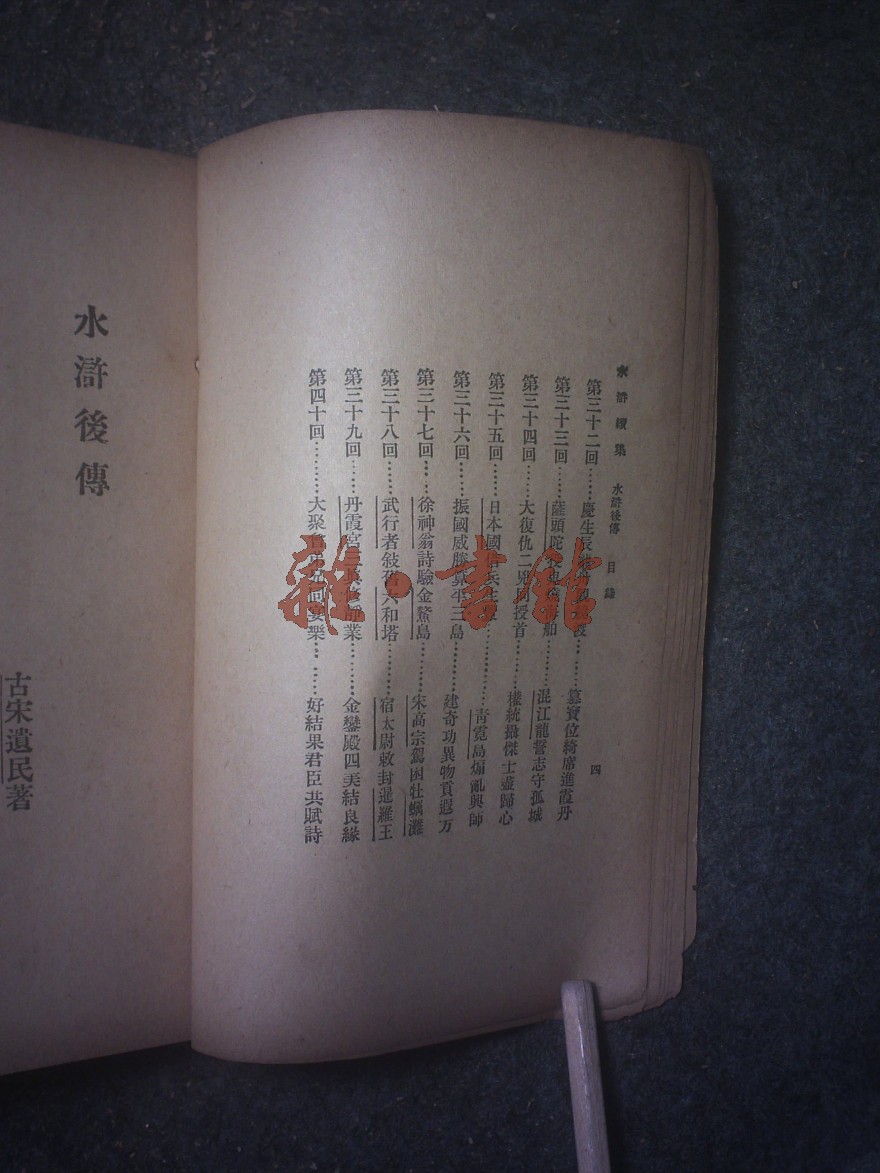 水滸續集　水滸後傳　目錄　四
第三十二回……慶生辰……篡寶位綺席進霞丹
第三十三回……薩頭陀……船……混江龍誓志守孤城
第三十四回……大復仇二兇……授首……權統攝傑士盡歸心
第三十五回……日本國……兵……青霓島煽亂興師
第三十六回……振國威勝算平三島……建奇功異物貢遐方
第三十七回……徐神翁詩驗金鰲島……宋高宗駕困牡蠣灘
第三十八回……武行者敍舊六和塔……宿太尉敕封暹羅王
第三十九回……丹霞宮三……業……金鑾殿四美結良緣
第四十回……大聚……宴樂……好結果君臣共賦詩
水滸後傳
古宋遺民著
雜·書館